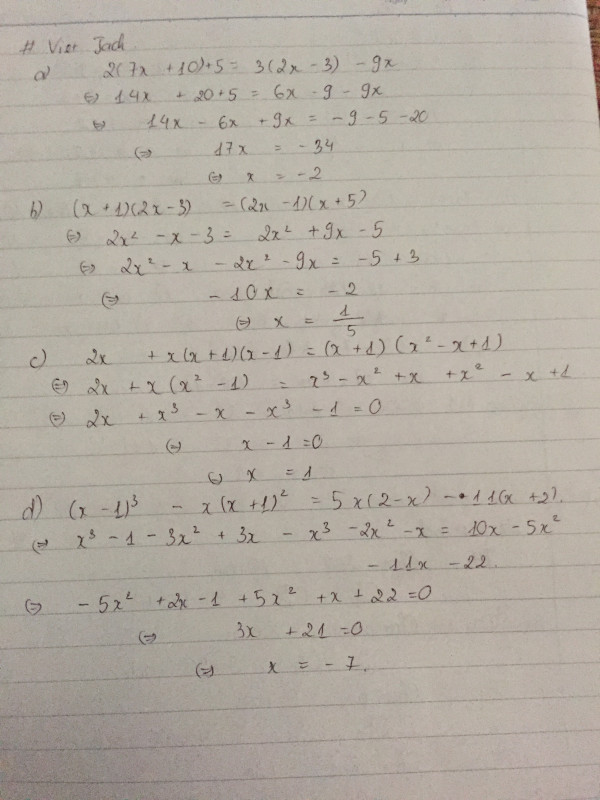 # Viet Jack
a) 2(7x + 10)+5 = 3(2x - 3) - 9x
⇔ 14x + 20+5 = 6x - 9 - 9x
⇔ 14x - 6x + 9x = -9 - 5 - 20
⇔ 17x = -34
⇔ x = -2
b) (x + 1)(2x - 3) = (2x - 1)(x + 5)
⇔ 2x² - x - 3 = 2x² + 9x - 5
⇔ 2x² - x - 2x² - 9x = -5 + 3
⇔ -10x = -2
⇔ x = 1/5
c) 2x + x(x + 1)(x - 1) = (x + 1)(x² - x + 1)
⇔ 2x + x(x² - 1) = x³ - x² + x + x² - x + 1
⇔ 2x + x³ - x - x³ - 1 = 0
⇔ x - 1 = 0
⇔ x = 1
d) (x - 1)³ - x(x + 1)² = 5x(2 - x) - 11(x + 2).
⇔ x³ - 1 - 3x² + 3x - x³ - 2x² - x = 10x - 5x²
- 11x - 22.
⇔ -5x² + 2x - 1 + 5x² + x + 22 = 0
⇔ 3x + 21 = 0
⇔ x = -7.